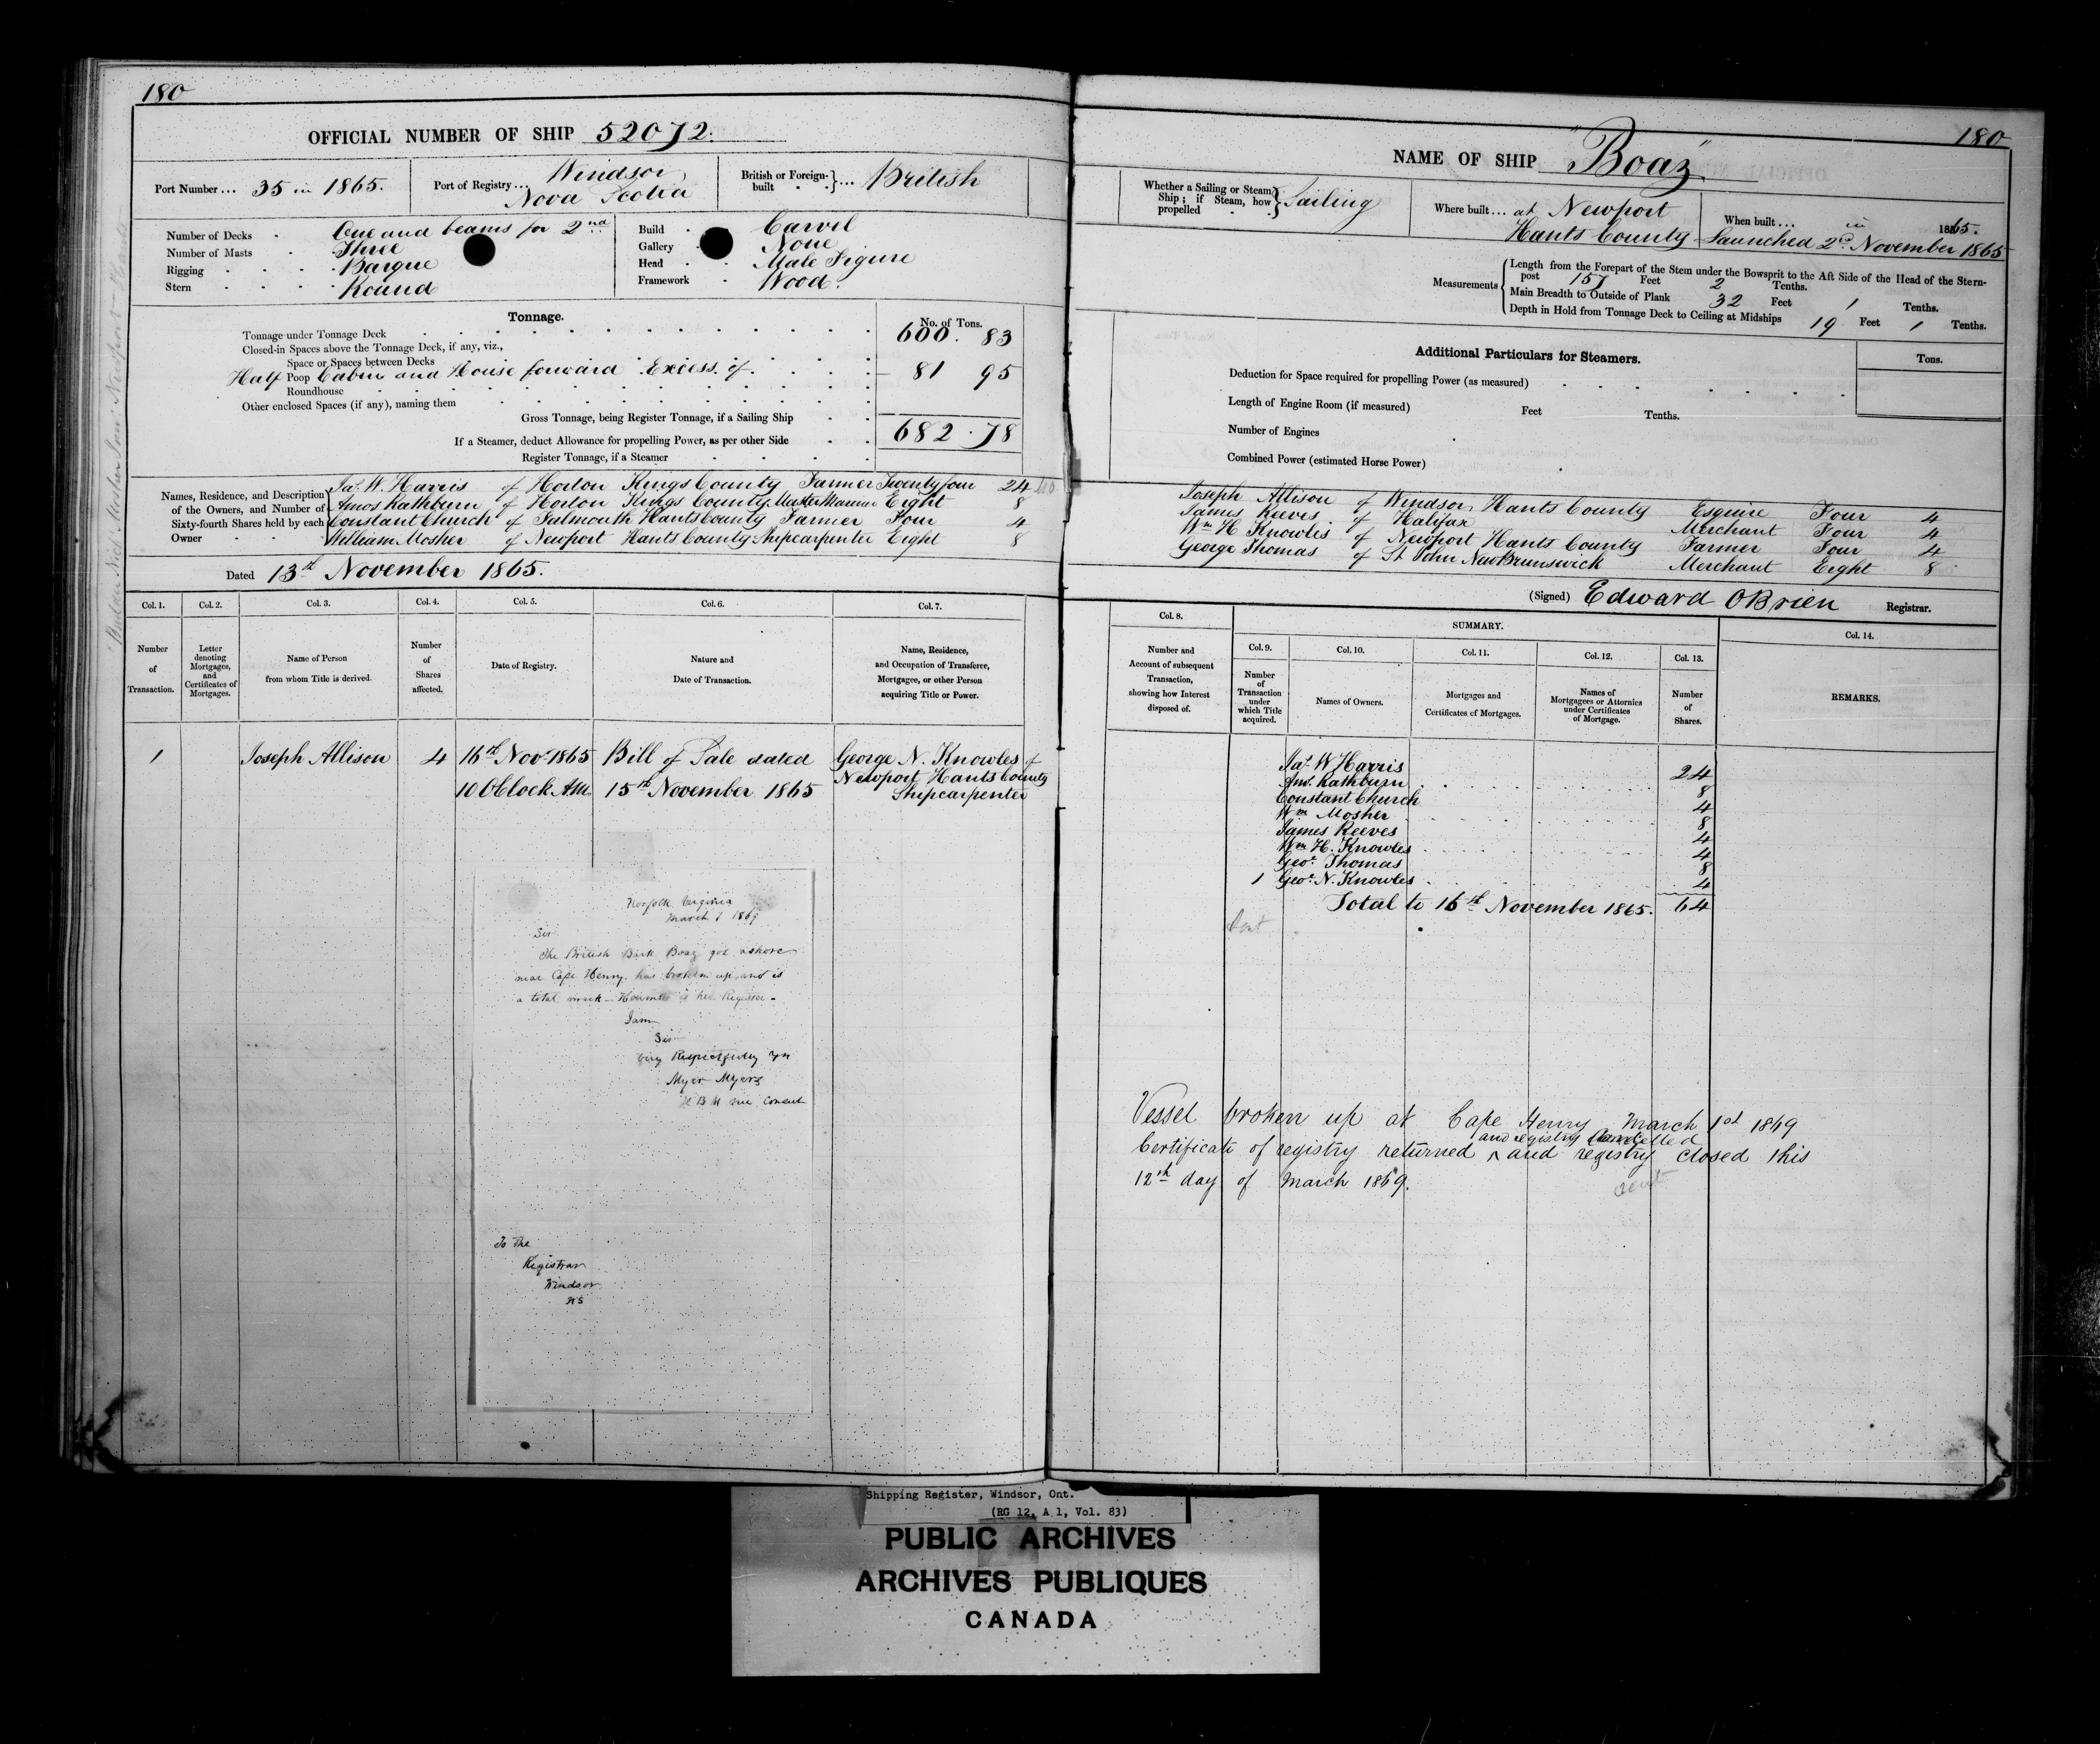 180
OFFICIAL NUMBER OF SHIP 52072.
Port Number ... 35 in 1865.
Port of Registry ... Windsor
Nova Scotia
British or Foreign-built ... British
Number of Decks One and beams for 2nd
Number of Masts Three
Rigging Barque
Stern Round
Build Carvel
Gallery None
Head Male Figure
Framework Wood.
Tonnage.
No. of Tons.
Tonnage under Tonnage Deck 600. 83
Closed-in Spaces above the Tonnage Deck, if any, viz.,
Space or Spaces between Decks
Half Poop Cabin and House forward Excess of 81 95
Roundhouse
Other enclosed Spaces (if any), naming them
Gross Tonnage, being Register Tonnage, if a Sailing Ship 682.78
If a Steamer, deduct Allowance for propelling Power, as per other Side
Register Tonnage, if a Steamer
Names, Residence, and Description of the Owners, and Number of Sixty-fourth Shares held by each Owner
Jas. W. Harris of Horton Kings County Farmer Twenty four 24
Amos Rathburn of Horton Kings County Master Mariner Eight 8
Constant Church of Falmouth Hants County Farmer Four 4
William Mosher of Newport Hants County Shipcarpenter Eight 8
Dated 13th November 1865.
Col. 1. Col. 2. Col. 3. Col. 4. Col. 5. Col. 6. Col. 7.
Number of Transaction.
Letter denoting Mortgages, and Certificates of Mortgages.
Name of Person from whom Title is derived.
Number of Shares affected.
Date of Registry.
Nature and Date of Transaction.
Name, Residence, and Occupation of Transferee, Mortgagee, or other Person acquiring Title or Power.
1 Joseph Allison 4 16th Nov 1865 Bill of Sale dated George N. Knowles of
10 OClock A.M. 15th November 1865 Newport Hants County
Shipcarpenter
Norfolk Virginia
March 1 1869
Sir
The British Bark Boaz got ashore
near Cape Henry, has broken up and is
a total wreck - Herewith is her Register -
I am
Sir
Very Respectfully yrs
Myer Myers
H B M vice Consul
To The
Registrar
Windsor
NS
180
NAME OF SHIP "Boaz"
Whether a Sailing or Steam Ship; if Steam, how propelled Sailing
Where built ... at Newport
Hants County
When built ... in 1865.
Launched 2d November 1865
Measurements
Length from the Forepart of the Stem under the Bowsprit to the Aft Side of the Head of the Stern-
post 157 Feet 2 Tenths.
Main Breadth to Outside of Plank 32 Feet 1 Tenths.
Depth in Hold from Tonnage Deck to Ceiling at Midships 19 Feet 1 Tenths.
Additional Particulars for Steamers.
Tons.
Deduction for Space required for propelling Power (as measured)
Length of Engine Room (if measured) Feet Tenths.
Number of Engines
Combined Power (estimated Horse Power)
Joseph Allison of Windsor Hants County Esquire Four 4
James Reeves of Halifax Merchant Four 4
Wm H Knowles of Newport Hants County Farmer Four 4
George Thomas of St John New Brunswick Merchant Eight 8
(Signed) Edward OBrien Registrar.
Col. 8. SUMMARY. Col. 14.
Col. 9. Col. 10. Col. 11. Col. 12. Col. 13.
Number and Account of subsequent Transaction, showing how Interest disposed of.
Number of Transaction under which Title acquired.
Names of Owners.
Mortgages and Certificates of Mortgages.
Names of Mortgagees or Attornies under Certificates of Mortgage.
Number of Shares.
REMARKS.
Jas. W Harris 24
Ams. Rathburn 8
Constant Church 4
Wm Mosher 8
James Reeves 4
Wm H. Knowles 4
Geoe Thomas 8
1 Geoe N. Knowles 4
Total to 16th November 1865. 64
Vessel broken up at Cape Henry March 1st 1869
and registry Cancelled
Certificate of registry returned ^ and registry closed this
12th day of March 1869.
Shipping Register, Windsor, Ont.
(RG 12, A 1, Vol. 83)
PUBLIC ARCHIVES
ARCHIVES PUBLIQUES
CANADA